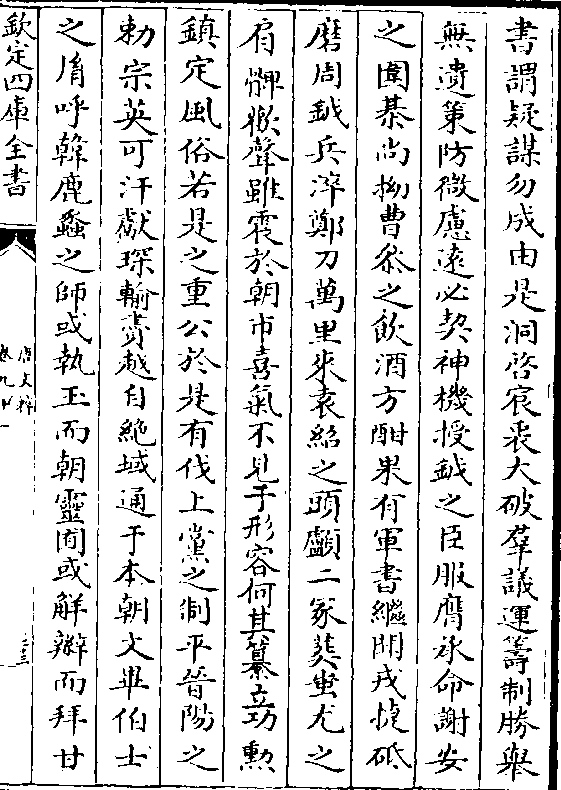 書謂疑謀勿成由是洞啓宸衷大破羣議運籌制勝舉
無遺策防微慮遠必契神機授鉞之臣服膺承命謝安
之圍棊尚拗曹叅之飲酒方酣果有軍書繼聞戎捷砥
磨周鉞兵淬鄭刀萬里來袁紹之頭顱二冢葬蚩尤之
肩髀歡聲雖震於朝市喜氣不見于形容何其纂立功勲
鎮定風俗若是之重公於是有伐上黨之制平晉陽之
勅宗英可汗獻琛輸賮越自絶域通于本朝文畢伯士
之胤呼韓鹿蠡之師或執玉而朝靈囿或解辮而拜甘
欽定四庫全書
唐文粹
卷九十一